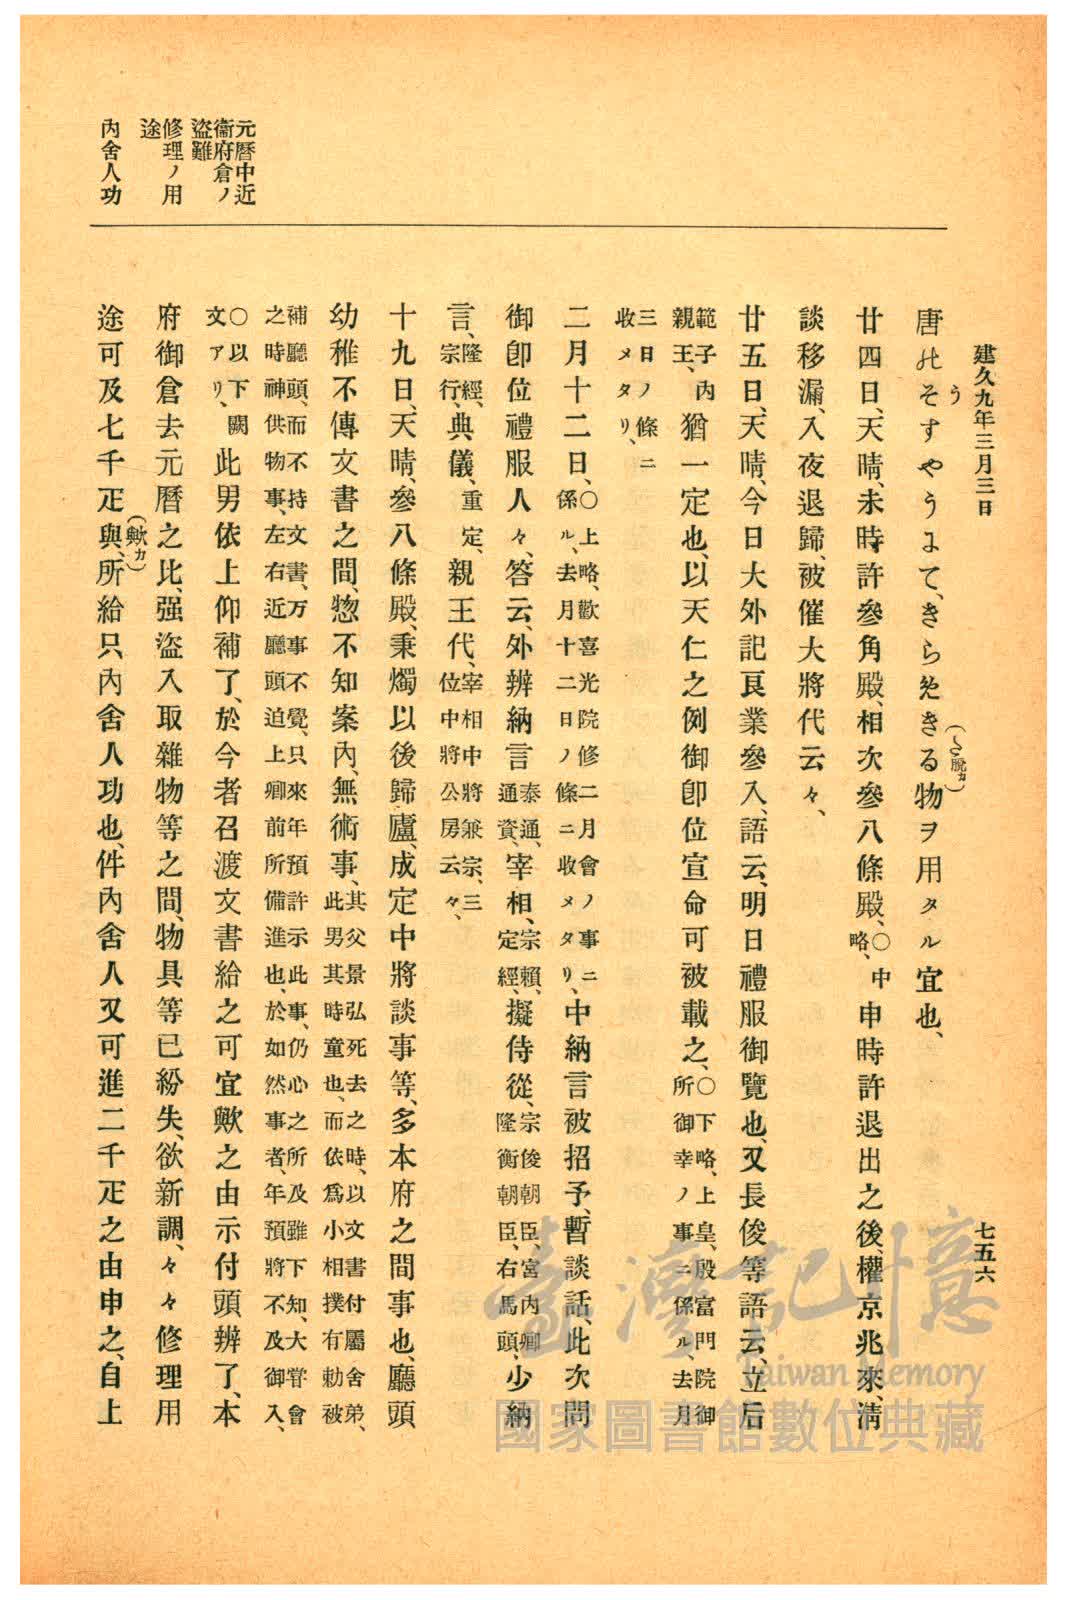 建久九年三月三日
七五六
元曆中近
衞府倉ノ
盜難
修理ノ用
途
內舍人功
唐のそすやうにて、きらめきる物ヲ用タル宜也、
う
(た脫カ)
廿四日、天晴、未時許參角殿、相次參八條殿、○中略、申時許退出之後、權京兆來、淸
談移漏、入夜退歸、被催大將代云々、
廿五日、天晴、今日大外記良業參入、語云、明日禮服御覽也、又長俊等語云、立后
範子內親王、猶一定也、以天仁之例御卽位宣命可被載之、○下略、上皇、殷富門院御所御幸ノ事ニ係ル、去月
三日ノ條ニ收メタリ、
二月十二日、○上略、歡喜光院修二月會ノ事ニ係ル、去月十二日ノ條ニ收メタリ、中納言被招予、暫談話、此次問
御卽位禮服人々、答云、外辨納言泰通、通資、宰相、宗賴、定經、擬侍從、宗俊朝臣、宮內卿隆衡朝臣、右馬頭、少納
言、隆經、宗行、典儀、重定、親王代、宰相中將兼宗、三位中將公房云々、
十九日、天晴、參八條殿、秉燭以後歸廬、成定中將談事等、多本府之間事也、廳頭
幼稚不傳文書之間、惣不知案內、無術事、其父景弘死去之時、以文書付屬舍弟、此男其時童也、而依爲小相撲有勅被
補廳頭、而不持文書、万事不覺、只來年預許示此事、仍心之所及雖下知、大甞會之時神供物事、左右近廳頭迫上卿前所備進也、於如然事者、年預將不及御入、
○以下闕文アリ、此男依上仰補了、於今者召渡文書給之可宜歟之由示付頭辨了、本
府御倉去元曆之比、强盜入取雜物等之間、物具等已紛失、欲新調、々々修理用
途可及七千疋與、所給只內舍人功也、件內舍人又可進二千疋之由申之、自上
(歟カ)
臺灣記憶
Taiwan Memory
國家圖書館數位典藏